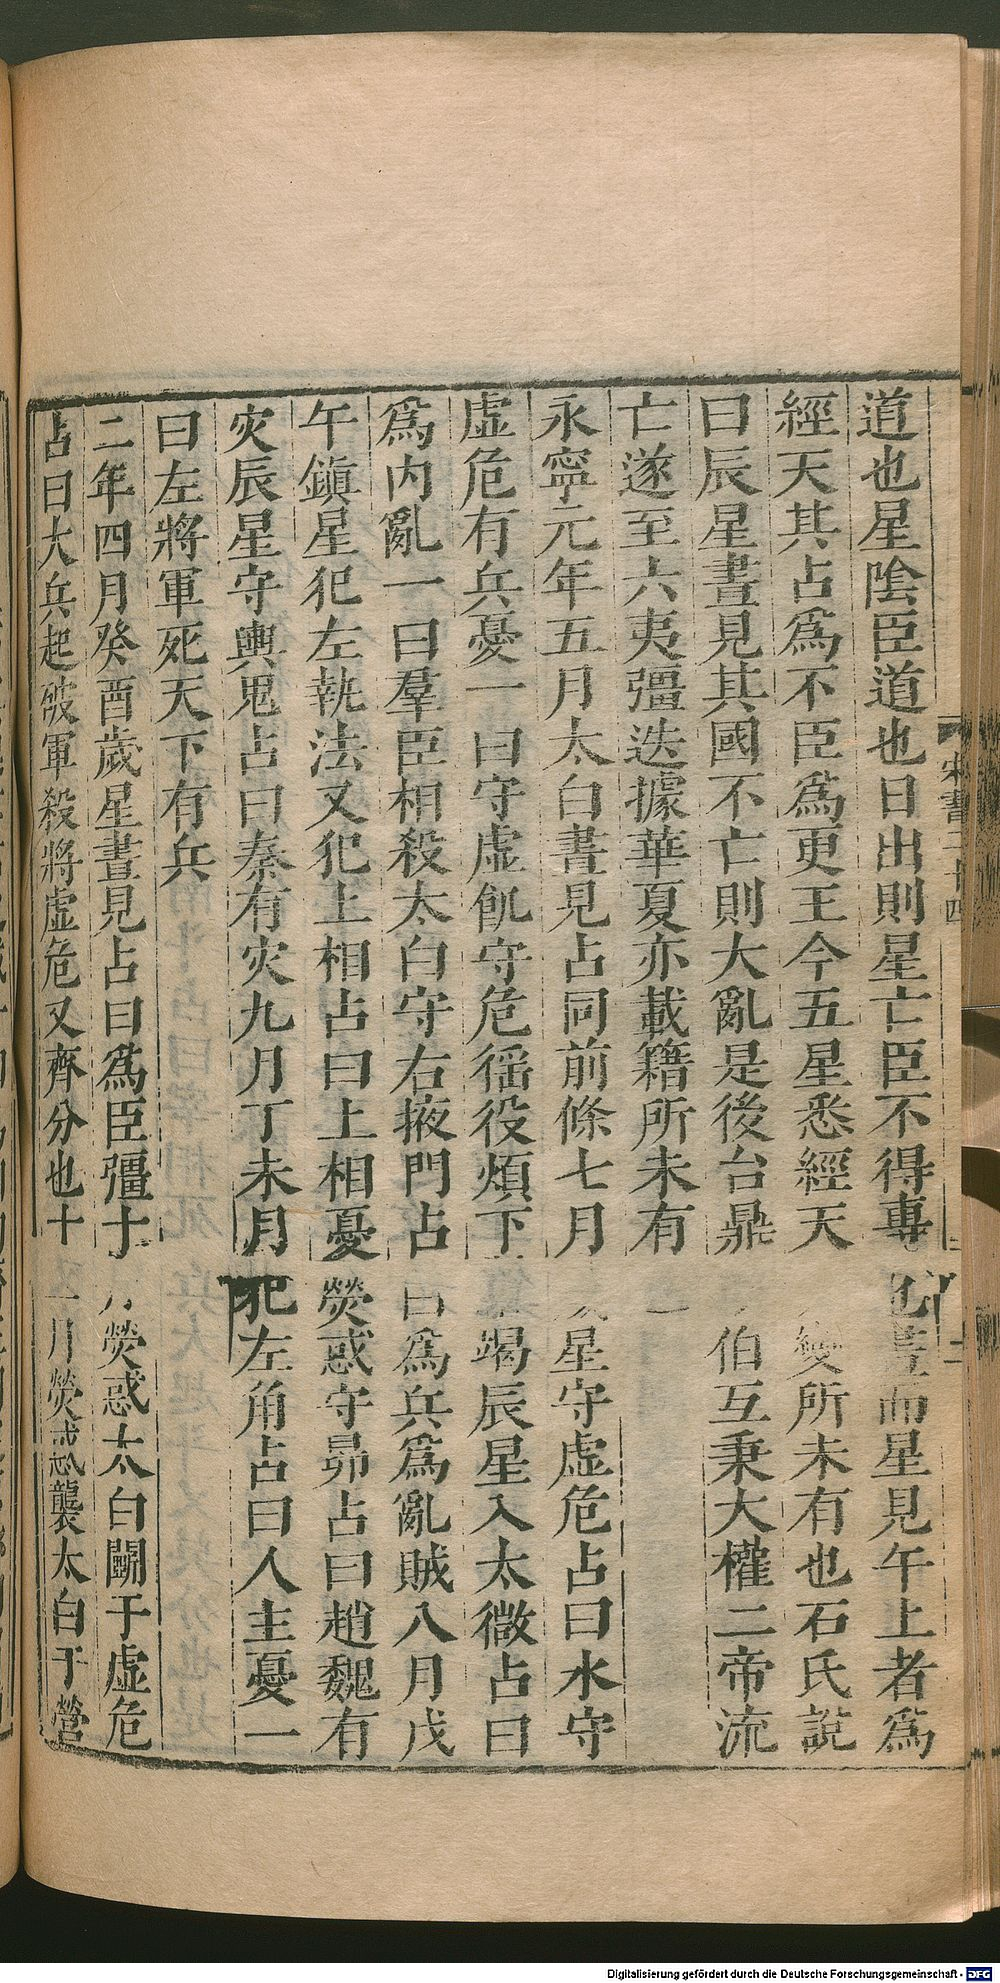 道也星陰臣道也日出則星亡臣不得專也晝而星見午上者爲
經天其占爲不臣爲更王今五星悉經天變所未有也石氏說
曰辰星晝見其國不亡則大亂是後台鼎伯互秉大權二帝流
亡遂至六夷彊迭據華夏亦載籍所未有
永寧元年五月太白晝見占同前條七月星守虛危占曰水守
虛危有兵憂一曰守虛飢守危徭役煩下竭辰星入太微占曰
爲內亂一曰羣臣相殺太白守右掖門占曰爲兵爲亂賊八月戊
午鎮星犯左執法又犯上相占曰上相憂熒惑守昴占曰趙魏有
灾辰星守輿鬼占曰秦有灾九月丁未月犯左角占曰人主憂一
曰左將軍死天下有兵
二年四月癸酉歲星晝見占曰爲臣彊十月熒惑太白鬭于虛危
占曰大兵起破軍殺將虛危又齊分也十一月熒惑襲太白于營
宋書二十四
Digitalisierung gefördert durch die Deutsche Forschungsgemeinschaft - DFG